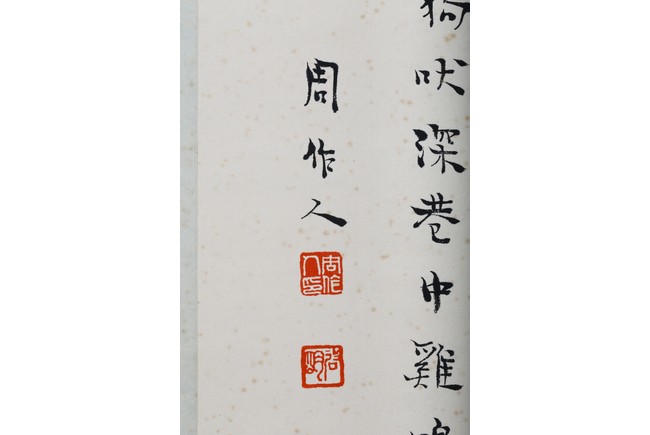 狗吠深巷中雞鳴
周作人
周作人印
啓明